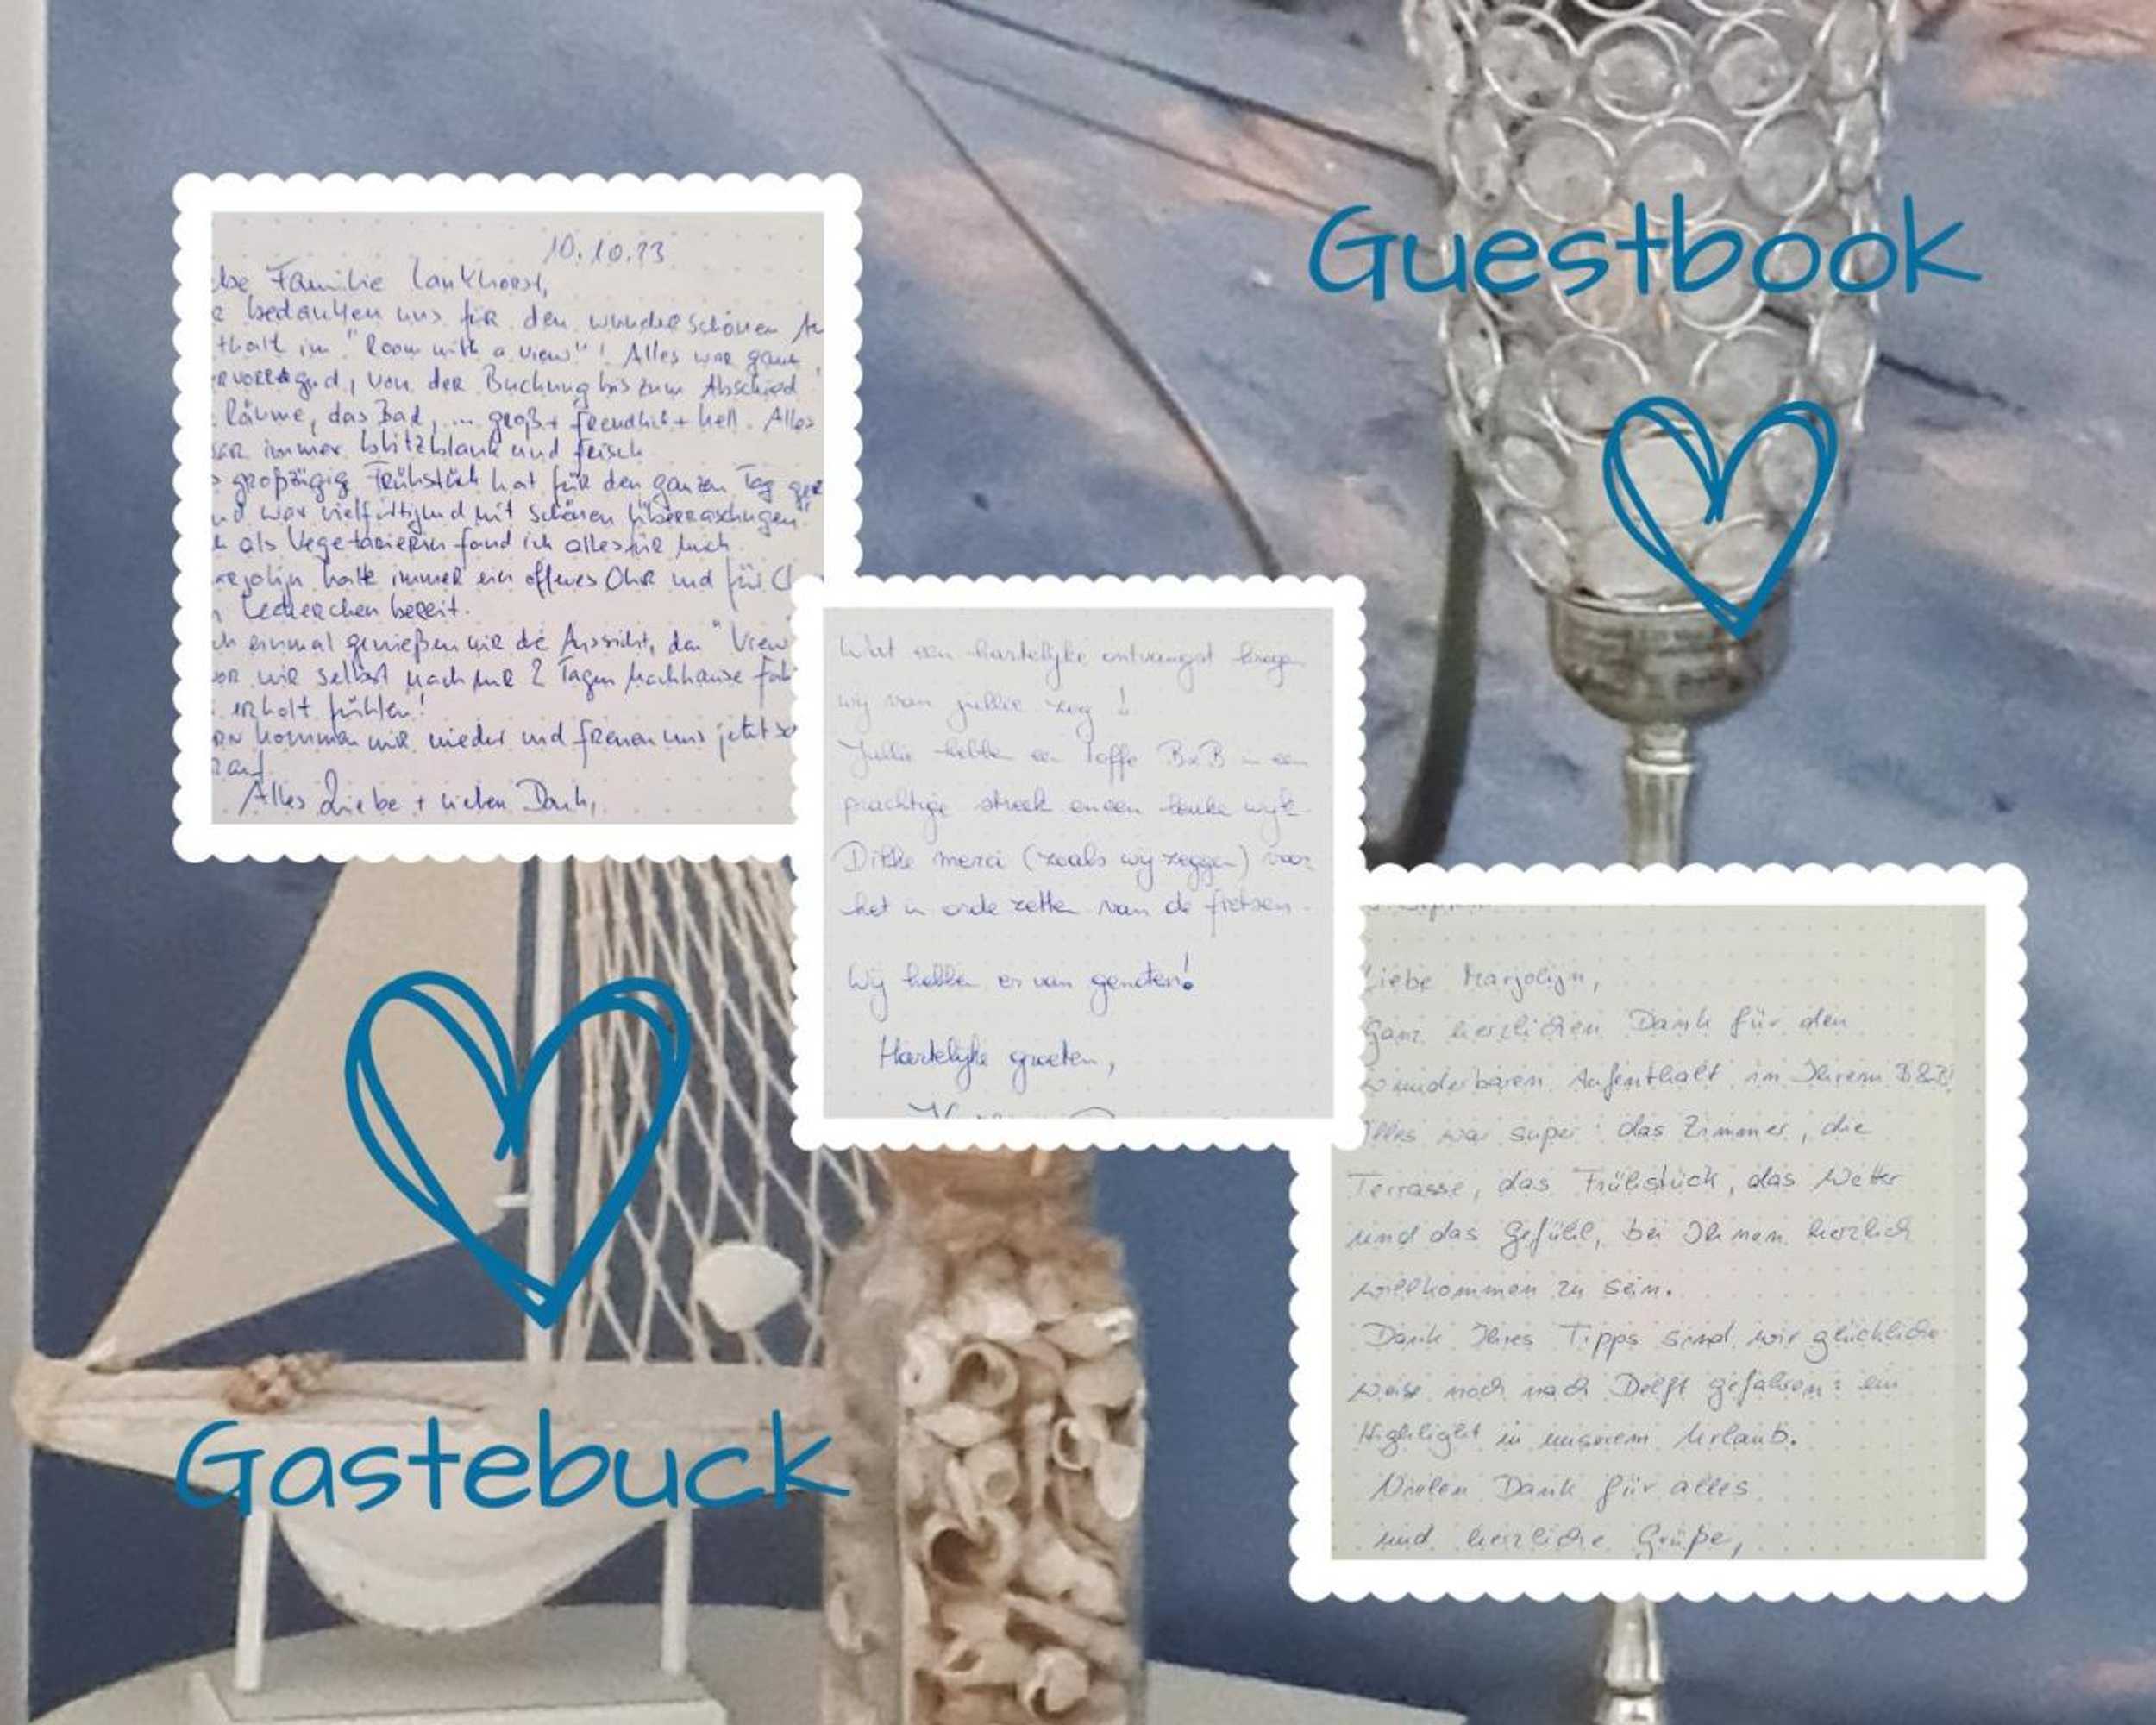 Guestbook
10.10.23
be Familie Lankhorst,
bedanken uns für den wunderschönen Au
thalt im "Room with a view"! Alles war ganz
rvorragend, von der Buchung bis zum Abschied
Räume, das Bad, ... groß + freundlich + hell. Alles
war immer blitzblank und frisch.
großzügig Frühstück hat für den ganzen Tag ger
nd war vielfältig und mit schönen Überraschungen!
als Vegetarierin fand ich alles für mich.
rejolijn hatte immer ein offenes Ohr und für
Leckerchen bereit.
ch einmal genießen wir die Aussicht, den "View
vor wir selbst nach nur 2 Tagen nachhause fah
erholt fühlen!
kommen wir wieder und freuen uns jetzt sc
auf
Alles Liebe + lieben Dank,
Wat een hartelijke ontvangst kregen
wij van jullie zeg !
Jullie hebben een toffe B&B in een
prachtige streek en een leuke wijk.
Dikke merci (zoals wij zeggen) voor
het in orde zetten van de fietsen.
Wij hebben er van genoten!
Hartelijke groeten,
Liebe Marjolijn,
Ganz herzlichen Dank für den
wunderbaren Aufenthalt in Ihrem B&B!
Alles war super: das Zimmer, die
Terrasse, das Frühstück, das Wetter
und das Gefühl, bei Ihnen herzlich
willkommen zu sein.
Dank Ihres Tipps sind wir glücklicher
weise noch nach Delft gefahren: ein
Highlight in unserem Urlaub.
Vielen Dank für alles
und herzliche Grüße,
Gastebuck